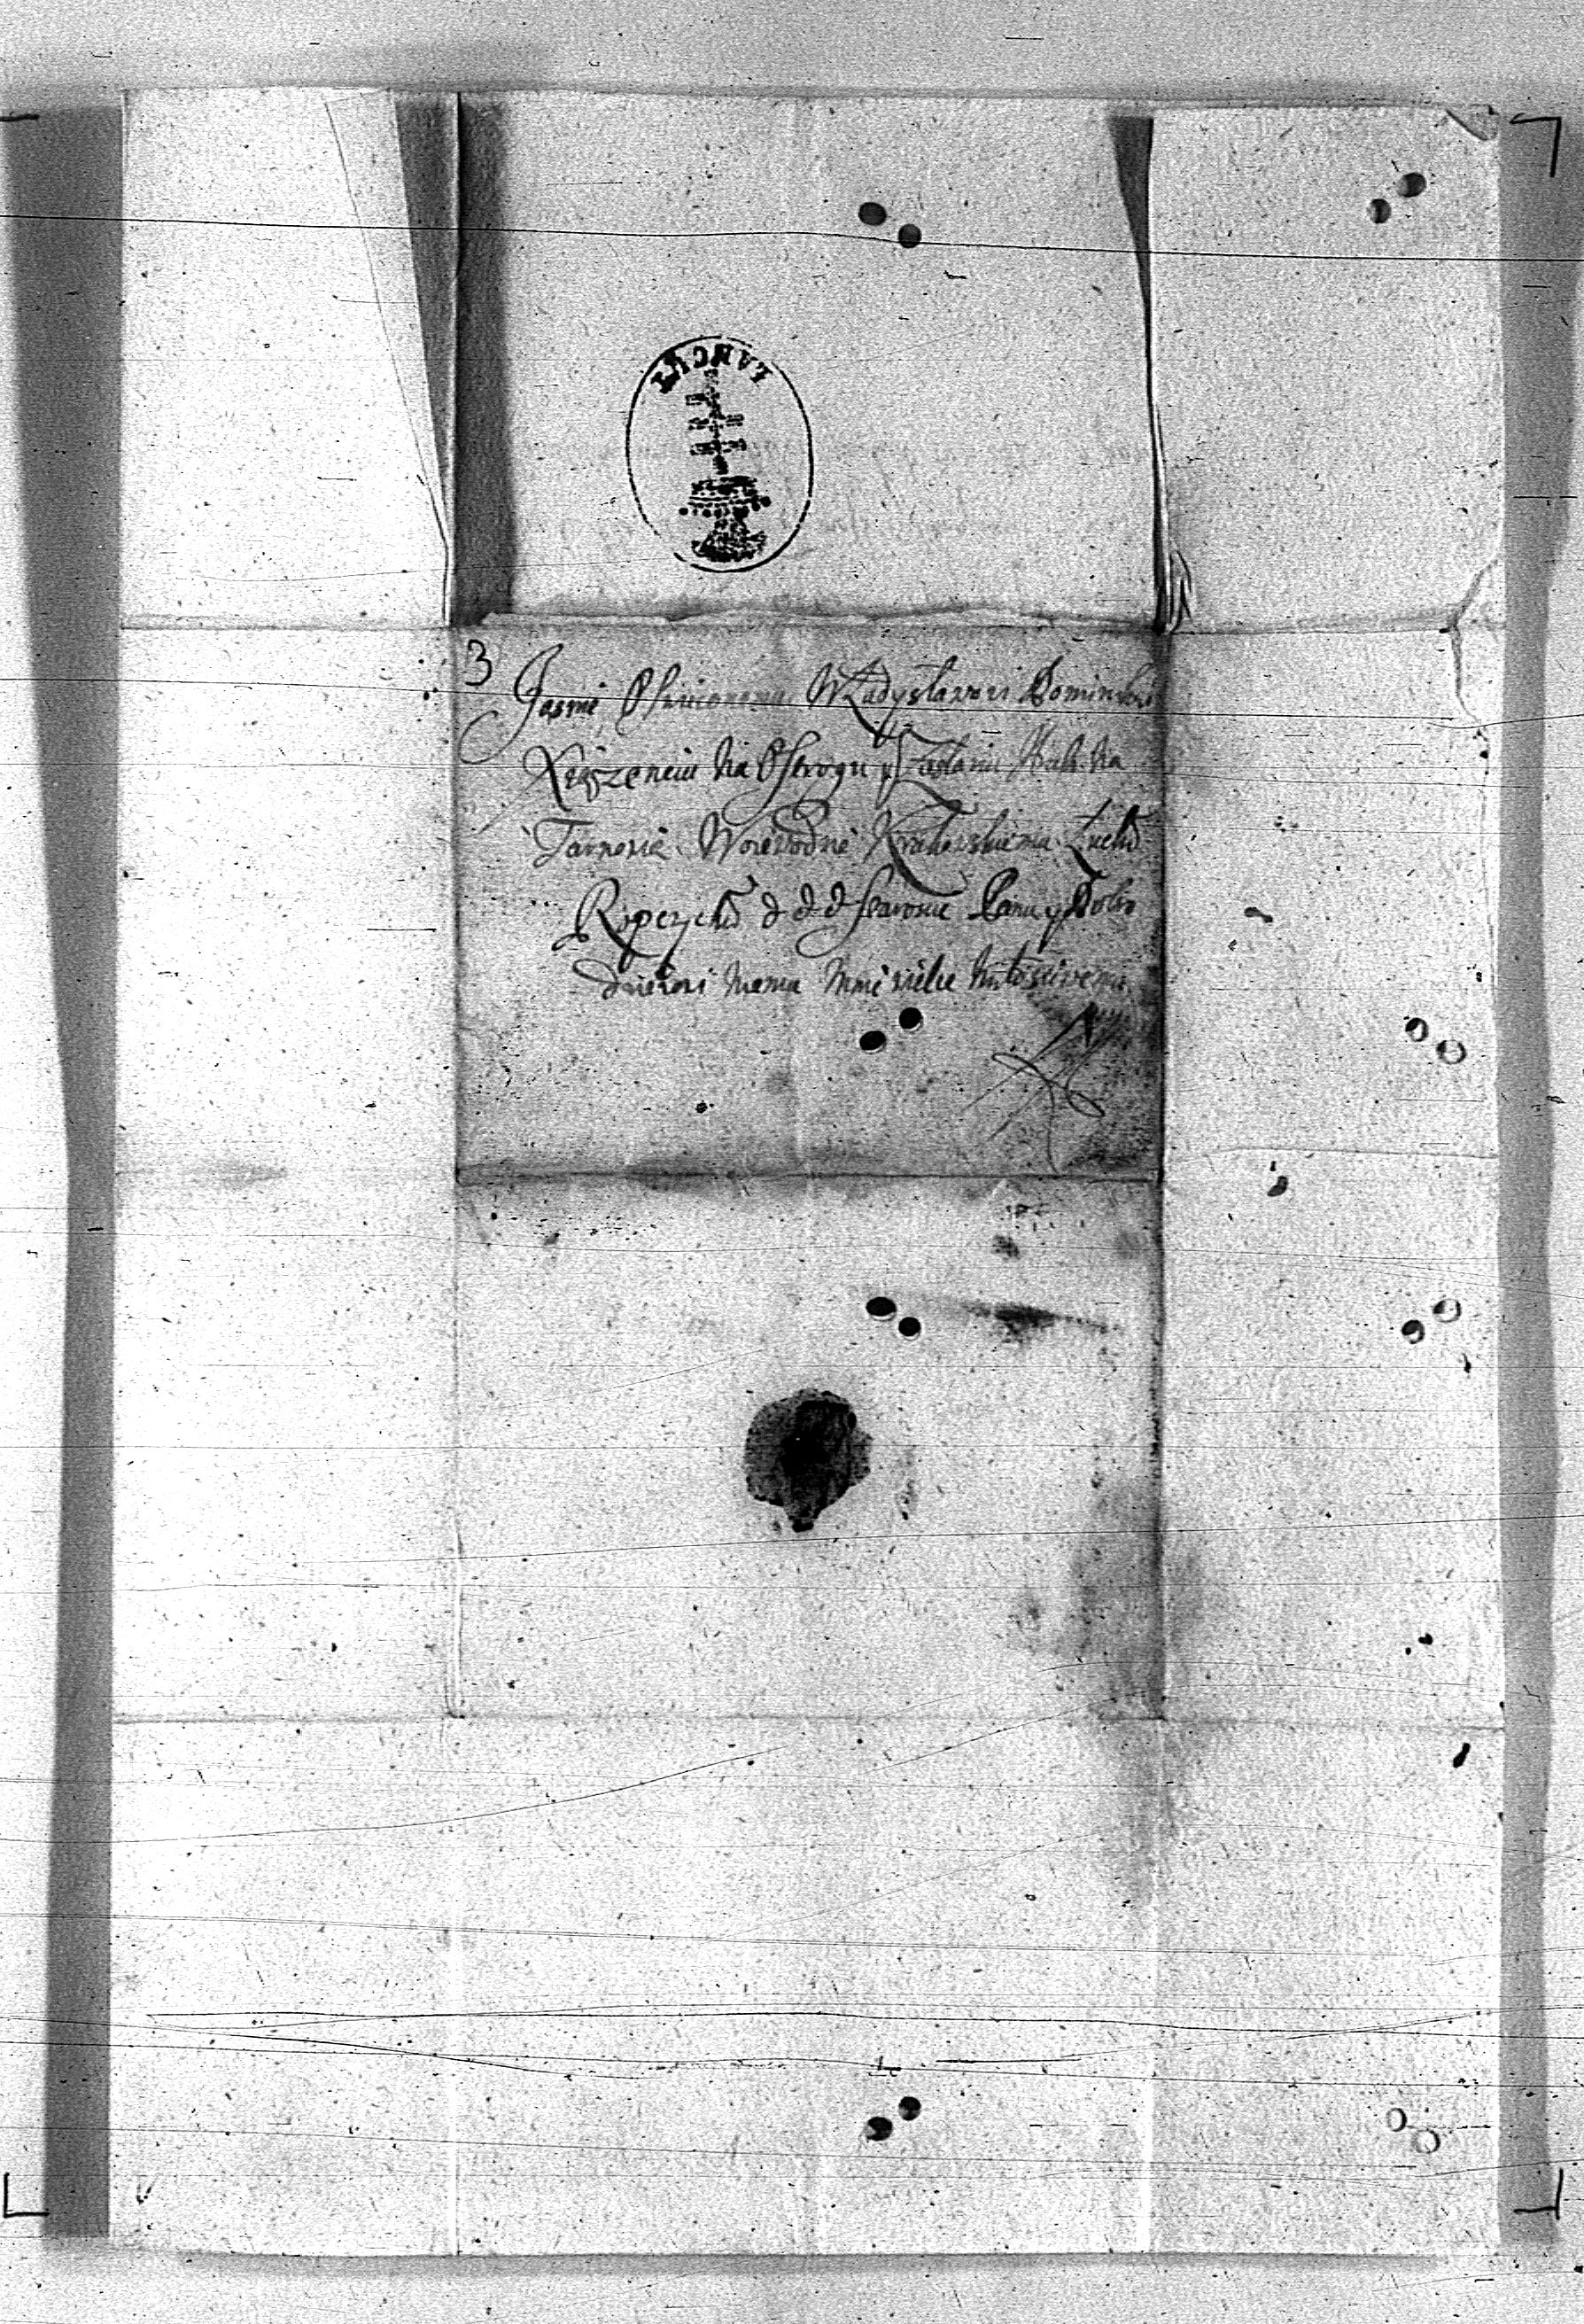 ŁAŃCUT
3
Jasnie Oswieconemu Władysławowi Dominikowi
Xiążenciu na Ostrogu y Zasławiu Hrab. na
Tarnowie Woiewodzie Krakowskiemu Luck
d d d staroscie Panu y Dobro
dzieiowi memu Mnie wielce Miłosciwemu